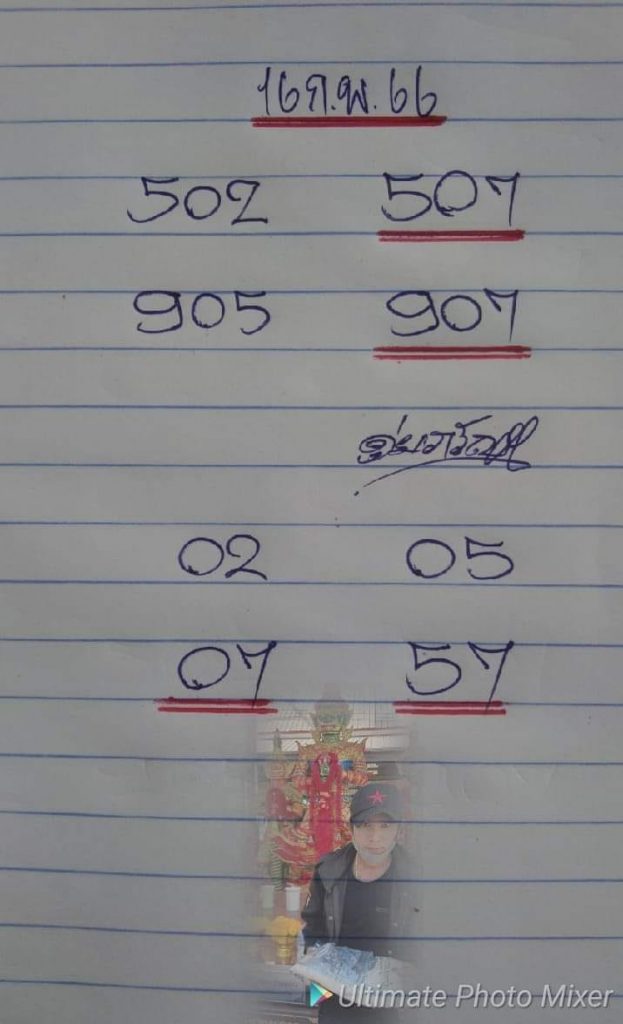 16 ก.พ. 66
502 507
905 907
02 05
07 57
Ultimate Photo Mixer